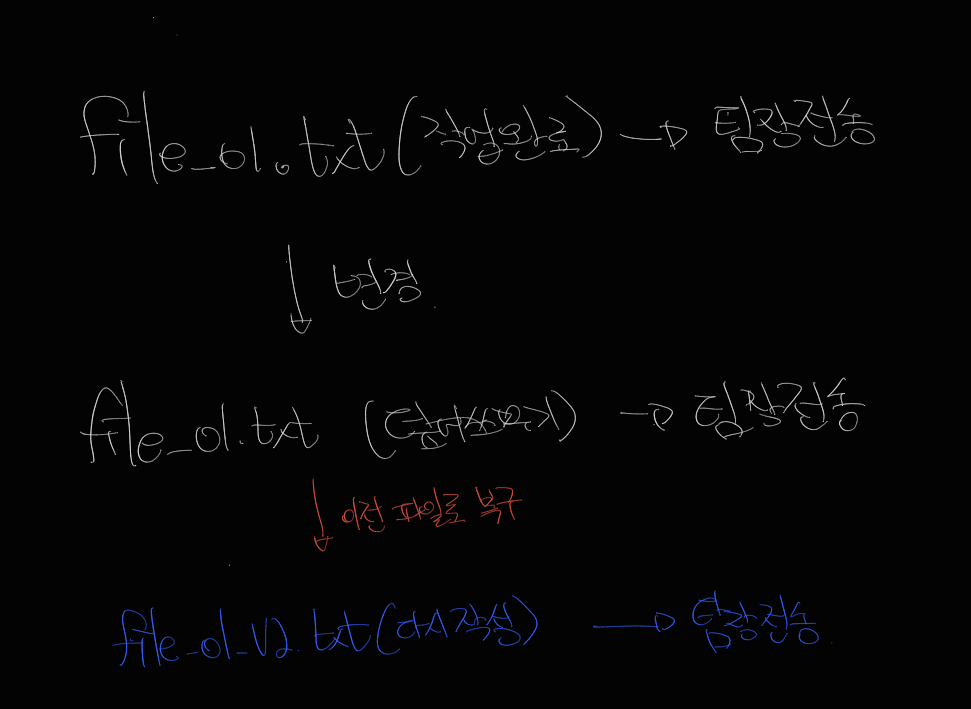 file_01.txt (작업완료) → 팀장전송
↓ 변경
file_01.txt (덮어쓰기) → 팀장전송
↓ 이전 파일로 복구
file_01_V2.txt (다시작성) → 팀장전송